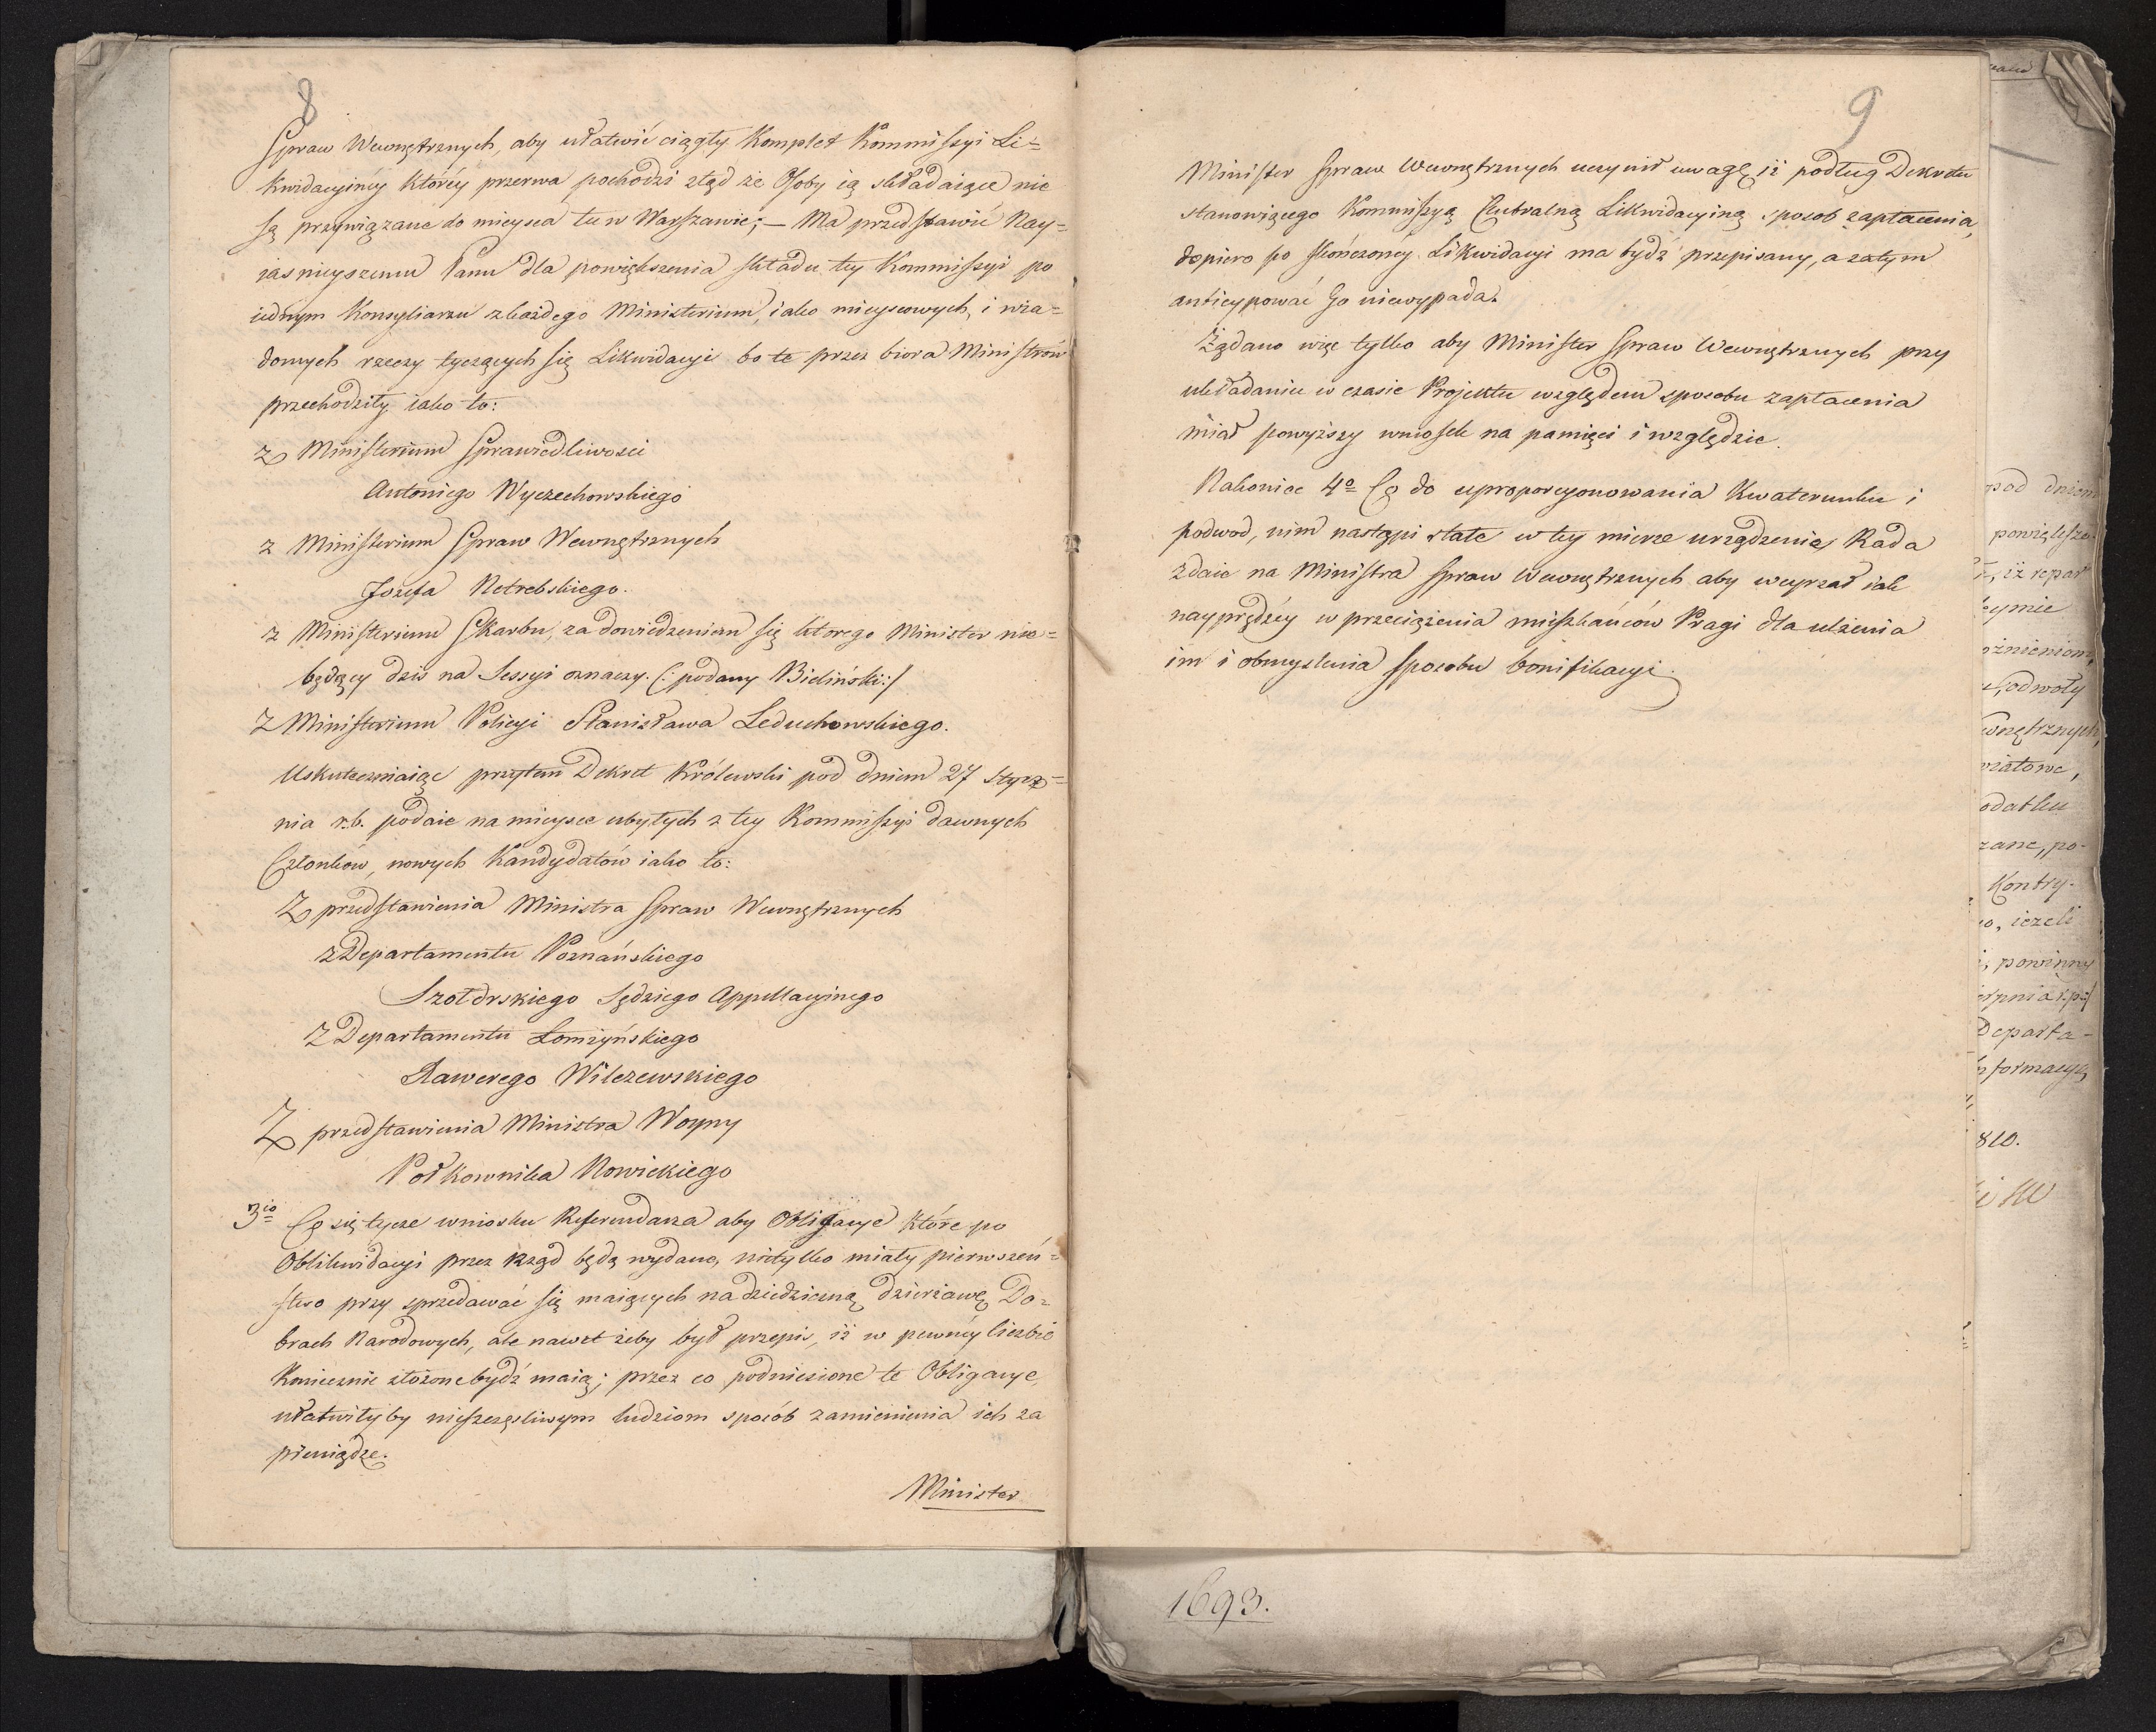 8
Spraw Wewnętrznych, aby ułatwić ciągły Komplet Kommissyi Li=
kwidacyinéy któréy przerwa pochodzi ztąd że Osoby ią składaiące nie
są przywiązane do mieysca tu w Warszawie; — Ma przedstawić Nay=
iaśnieyszemu Panu dla powiększenia składu téy Kommissyi po
iednym Konsyliarzu z każdego Ministerium, iako mieyscowych, i wia=
domych rzeczy tyczących się Likwidacyi bo te przez biora Ministrów
przechodziły iako to:
z Ministerium Sprawiedliwości
Antoniego Wyczechowskiego
z Ministerium Spraw Wewnętrznych
Józefa Netrebskiego.
z Ministerium Skarbu, za dowiedzeniem się którego Minister nie=
będący dziś na Sessyi oznaczy. (: podany Bieliński :)
z Ministerium Policyi Stanisława Leduchowskiego.
Uskuteczniaiąc przytem Dekret Królewski pod dniem 27 Stycz=
nia r.b. podaie na mieysce ubyłych z téy Kommissyi dawnych
Członków, nowych Kandydatów iako to:
Z przedstawienia Ministra Spraw Wewnętrznych
z Departamentu Poznańskiego
Szołdrskiego Sędziego Appellacyinego
z Departamentu Łomżyńskiego
Xawerego Wilczewskiego
Z przedstawienia Ministra Woyny
Połkownika Nowickiego
3io Co się tycze wniosku Referendarza aby Obligacye które po
Oblikwidacyi przez Rząd będą wydane, nietylko miały pierwszeń=
stwo przy sprzedawać się maiących na dziedziczną dzierżawę Do=
brach Narodowych, ale nawet żeby był przepis, iż w pewnéy liczbie
Koniecznie złożone bydź maią; przez co podniesione te Obligacye,
ułatwiłyby nieszczęśliwym ludziom sposób zamienienia ich za
pieniądze.
Minister
9
Minister Spraw Wewnętrznych uczynił uwagę iż podług Dekretu
stanowiącego Kommissyą Centralną Likwidacyiną sposób zapłacenia,
dopiero po skończonéy Likwidacyi ma bydź przepisany, a zatym
anticypować Go niewypada.
Żądano więc tylko aby Minister Spraw Wewnętrznych przy
układaniu w czasie Projektu względem sposobu zapłacenia
miał powyższy wniosek na pamięci i względzie.
Nakoniec 4o Co do uproporcyonowania Kwaterunku i
podwod, nim nastąpi stałe w téy mierze urządzenie, Rada
zdaie na Ministra Spraw Wewnętrznych aby weyrzał iak
nayprędzéy w przeciążenia mieszkańców Pragi dla ulżenia
im i obmyślenia sposobu bonifikacyi.
1693.
pod dniem
powiększe
iż repar
cymie
odwoły
wnętrznych,
wiatowe,
odatku
zane, po-
Kontry-
o, ieżeli
powinny
Departa-
nformacyę
810.